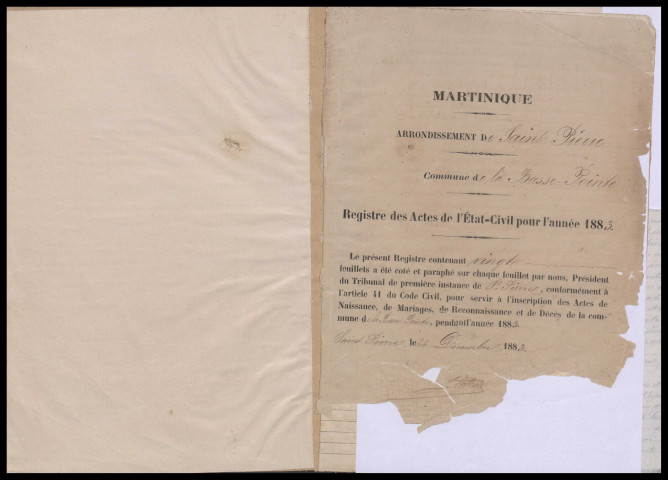 MARTINIQUE
ARRONDISSEMENT De Saint Pierre
Commune de la Basse-Pointe
Registre des Actes de l'État-Civil pour l'année 1883.
Le présent Registre contenant vingt
feuillets a été coté et paraphé sur chaque feuillet par nous, Président
du Tribunal de première instance de St Pierre, conformément à
l'article 41 du Code Civil, pour servir à l'inscription des Actes de
Naissance, de Mariages, de Reconnaissance et de Décès de la com-
mune de la Basse Pointe, pendant l'année 1883.
Saint Pierre, le Décembre 188